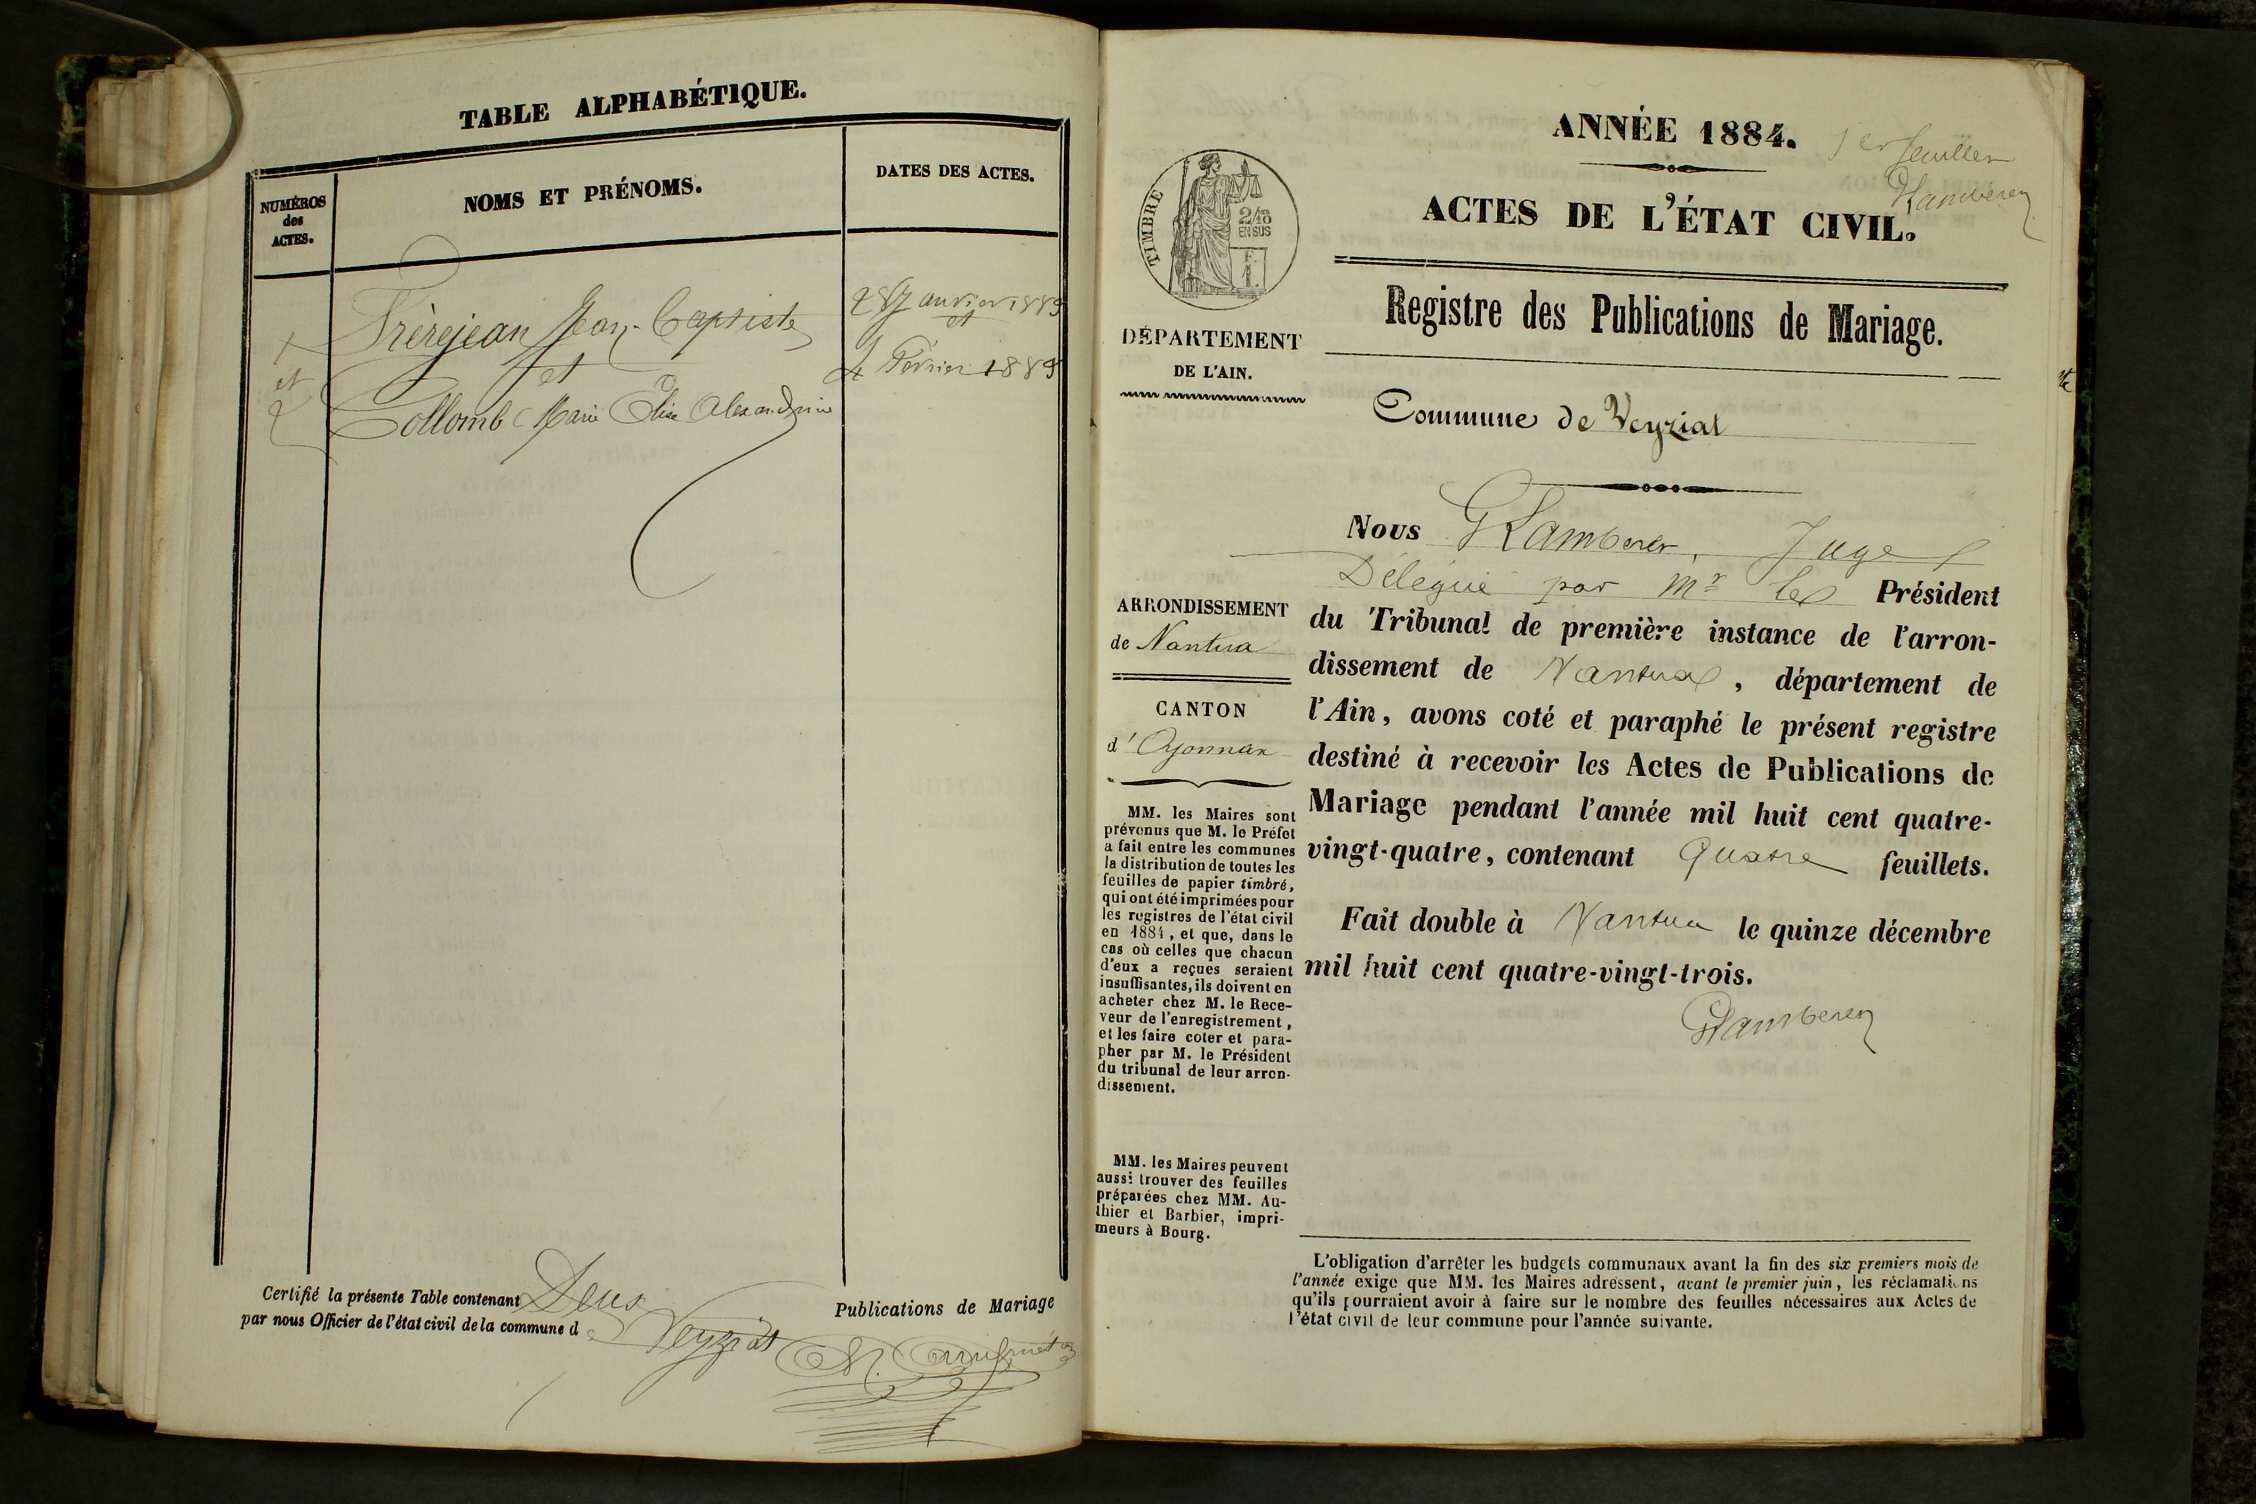 TABLE ALPHABÉTIQUE.
NUMÉROS
des
ACTES.
NOMS ET PRÉNOMS.
DATES DES ACTES.
1
et
2
Frèrejean Jean-Baptiste
et
Collomb Marie Elise Alexandrine
28 Janvier 1883
et
4 Février 1883
Certifié la présente Table contenant Deux Publications de Mariage
par nous Officier de l'état civil de la commune de Veyziat
ANNÉE 1884.
1er feuillet
GRamberer
ACTES DE L'ÉTAT CIVIL.
TIMBRE
2/10
EN SUS
F.
1.
Registre des Publications de Mariage.
DÉPARTEMENT
DE L'AIN.
Commune de Veyziat
ARRONDISSEMENT
de Nantua
CANTON
d'Oyonnax
MM. les Maires sont
prévenus que M. le Préfet
a fait entre les communes
la distribution de toutes les
feuilles de papier timbré,
qui ont été imprimées pour
les registres de l'état civil
en 1884, et que, dans le
cas où celles que chacun
d'eux a reçues seraient
insuffisantes, ils doivent en
acheter chez M. le Rece-
veur de l'enregistrement,
et les faire coter et para-
pher par M. le Président
du tribunal de leur arron-
dissement.
MM. les Maires peuvent
aussi trouver des feuilles
préparées chez MM. Au-
thier et Barbier, impri-
meurs à Bourg.
Nous GRamberer, Juge
Délégué par Mr le Président
du Tribunal de première instance de l'arron-
dissement de Nantua, département de
l'Ain, avons coté et paraphé le présent registre
destiné à recevoir les Actes de Publications de
Mariage pendant l'année mil huit cent quatre-
vingt-quatre, contenant Quatre feuillets.
Fait double à Nantua le quinze décembre
mil huit cent quatre-vingt-trois.
GRamberer
L'obligation d'arrêter les budgets communaux avant la fin des six premiers mois de
l'année exige que MM. les Maires adressent, avant le premier juin, les réclamations
qu'ils pourraient avoir à faire sur le nombre des feuilles nécessaires aux Actes de
l'état civil de leur commune pour l'année suivante.